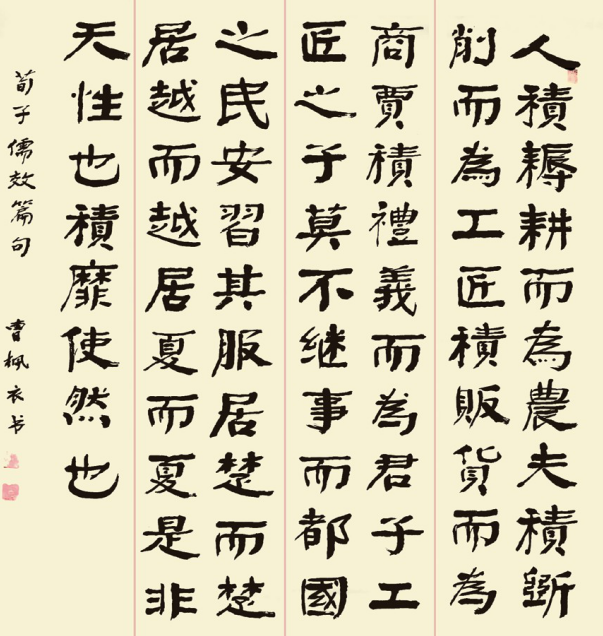 人積耨耕而為農夫積斲
削而為工匠積販貨而為
商賈積禮義而為君子工
匠之子莫不继事而都國
之民安習其服居楚而楚
居越而越居夏而夏是非
天性也積靡使然也
荀子儒效篇句 曹枫衣书